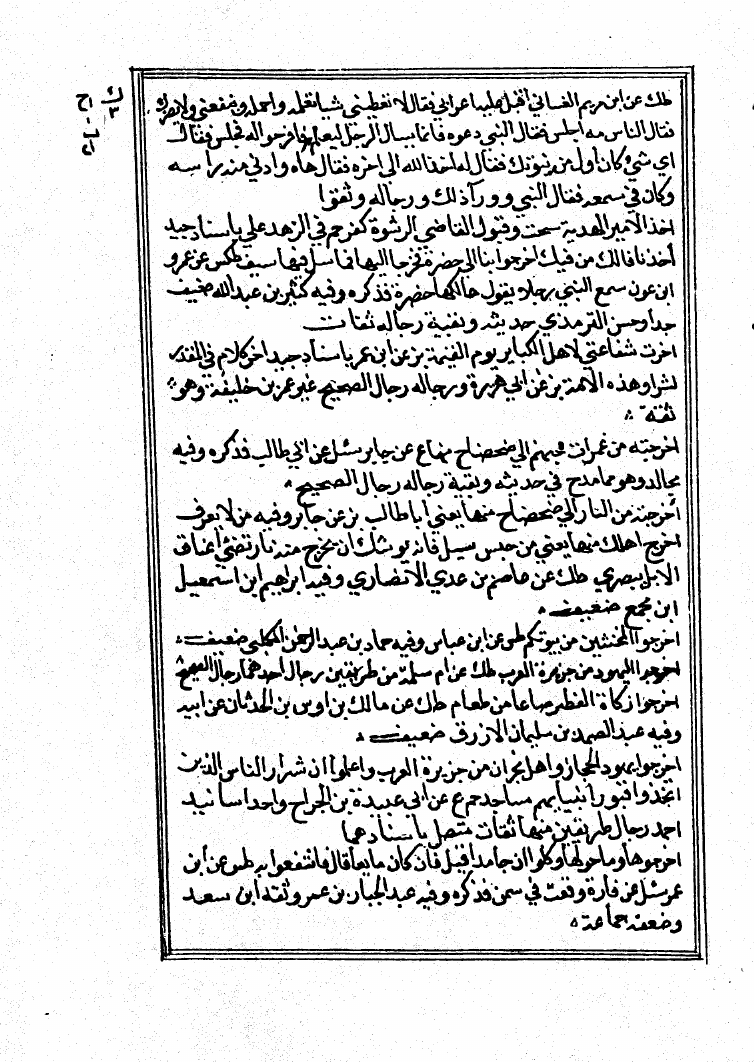 طك عن ابن مريم الغساني اقبل علينا عرابي فقال لا تعطيني شيا تعلمه واحمله وينفعني ولا يضرك
فقال الناس مه اجلس فقال النبي دعوه فانما يسال الرجل ليعلم فافرجوا له فجلس فقال
اي شي كان اول من نبوتك فقال له اخذ الله الى اخره فقال هاه وادني منه راسه
وكان في سمعه فقال النبي وورآ ذلك ورجاله وثقوا
اخذ الامير الهدية سحت وقبول القاضي الرشوة كفر حم في الزهد علي باسناد جيد
أخذنا فالك من فيك اخرجوا بنا الى خضرة فخرجنا اليها فما سل فيها سيف طكس عن عمرو
ابن عون سمع النبي رجلا يقول هاكها خضرة فذكره وفيه كثير بن عبد الله ضعيف
جدا وحسن الترمذي حديثه وبقية رجاله ثقات
اخرت شفاعتي لاهل الكباير يوم القيمة بز عن ابن عمر باسناد جيد اخر كلام في القدر
لشرار هذه الامة بز عن ابي هريرة ورجاله رجال الصحيح غير عمر بن خليفة وهو
ثقة
اخرجته من غمرات جهنم الى ضحضاح منها ع عن جابر سئل عن ابي طالب فذكره وفيه
مجالد وهو مما مدح في حديثه وبقية رجاله رجال الصحيح
أخرجته من النار الى ضحضاح منها يعني أبا طالب بز عن جابر وفيه من لا يعرف
اخرج اهلك منها يعني من حبس سيل فانه يوشك ان يخرج منه نار تضئ اعناق
الابل ببصرى طك عن عاصم بن عدي الانصاري وفيه ابراهيم ابن اسمعيل
ابن مجمع ضعيف
اخرجوا المخنثين من بيوتكم طس عن ابن عباس وفيه حماد بن عبد الرحمن الكلبي ضعيف
اخرجوا اليهود من جزيرة العرب طك عن ام سلمة من طريقين رجال احدهما رجال الصحيح
اخرجوا زكاة الفطر صاعا من طعام طك عن مالك بن اوس بن الحدثان عن ابيه
وفيه عبد الصمد بن سليمان الازرق ضعيف
اخرجوا يهود الحجاز واهل نجران من جزيرة العرب واعلموا ان شرار الناس الذين
اتخذوا قبور أنبيايهم مساجد حم ع عن ابى عبيدة بن الجراح واحد اسانيد
احمد رجال طريقين منها ثقات متصل باسنادهما
اخرجوها وما حولها وكلوا ان جامدا قيل فان كان مايعا قال فانتفعوا به طس عن ابن
عمر سئل عن فارة وقعت في سمن فذكره وفيه عبد الجبار بن عمر وثقه ابن سعد
وضعفه جماعة